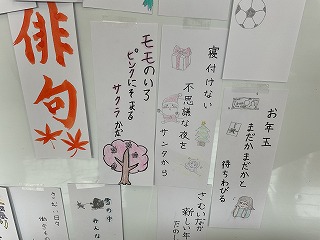 お年玉
まだかまだかと
待ちわびる
寝付けない
不思議な夜を
サンタから
モモのいろ
ピンクにそまる
サクラかな
俳句
さむいなか
新しい年
雪の中
みんな
さむい日々